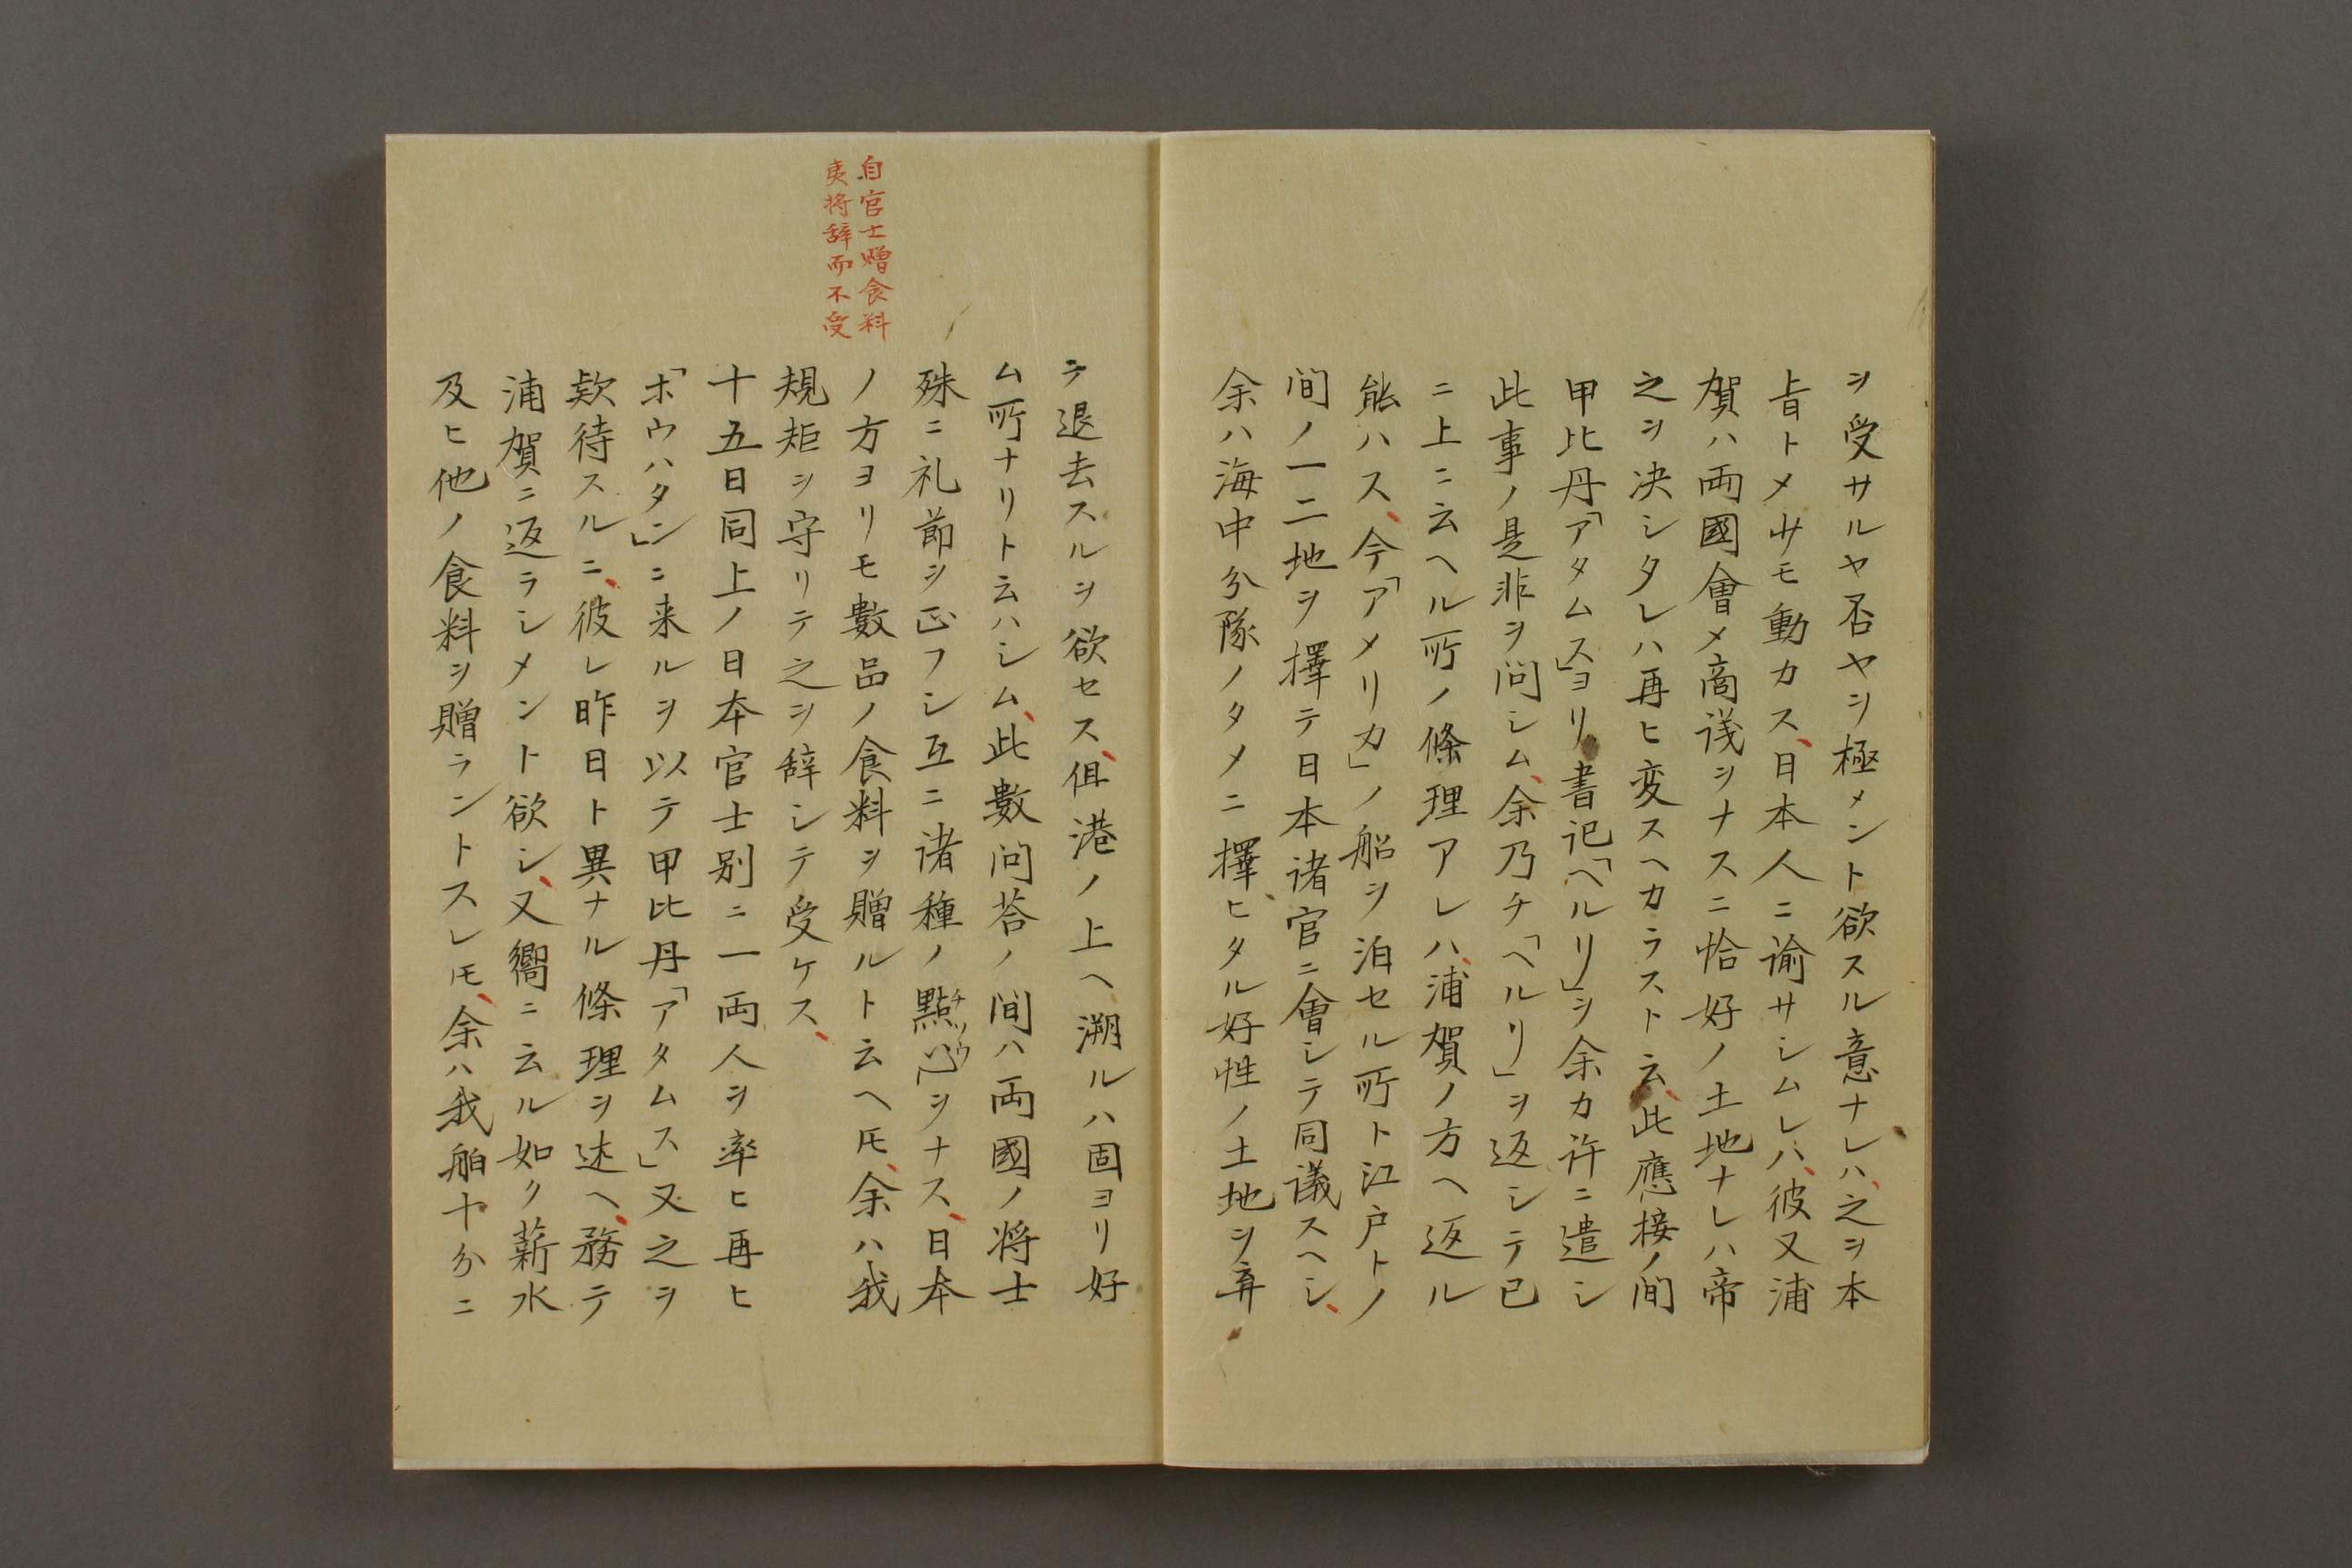 ヲ受サルヤ否ヤヲ極メント欲スル意ナレハ、之ヲ本
旨トメ㐧モ動カス、日本人ニ諭サシムレハ、彼又浦
賀ハ両國會メ商議ヲナスニ恰好ノ土地ナレハ帝
之ヲ决シタレハ再ヒ変スヘカラスト云、此應接ノ間
甲比丹「アタムス」ヨリ書記「ヘルリ」ヲ余カ許ニ遣シ
此事ノ是非ヲ问シム、余乃チ「ヘルリ」ヲ返シテ已
ニ上ニ云ヘル所ノ條理アレハ、浦賀ノ方ヘ返ル
能ハス、今「アメリカ」ノ船ヲ泊セル所ト江戸トノ
间ノ一二地ヲ擇テ日本諸官ニ會シテ同議スヘシ、
余ハ海中分隊ノタメニ擇ヒタル好性ノ土地ヲ弃
自官士贈食料
夷将辞而不受
テ退去スルヲ欲セス、但港ノ上ヘ溯ルハ固ヨリ好
ム所ナリト云ハシム、此數问荅ノ间ハ両國ノ将士
殊ニ礼節ヲ正フシ互ニ諸種ノ點心ヲナス、日本
チソウ
ノ方ヨリモ數品ノ食料ヲ贈ルト云ヘ𪜈、余ハ我
規矩ヲ守リテ之ヲ辞シテ受ケス、
十五日同上ノ日本官士别ニ一両人ヲ率ヒ再ヒ
「ホウハタン」ニ来ルヲ以テ甲比丹「アタムス」又之ヲ
欵待スルニ、彼レ昨日ト異ナル條理ヲ述ヘ、務テ
浦賀ニ返ラシメント欲シ、又嚮ニ云ル如ク薪水
及ヒ他ノ食料ヲ贈ラントスレ𪜈、余ハ我舶十分ニ